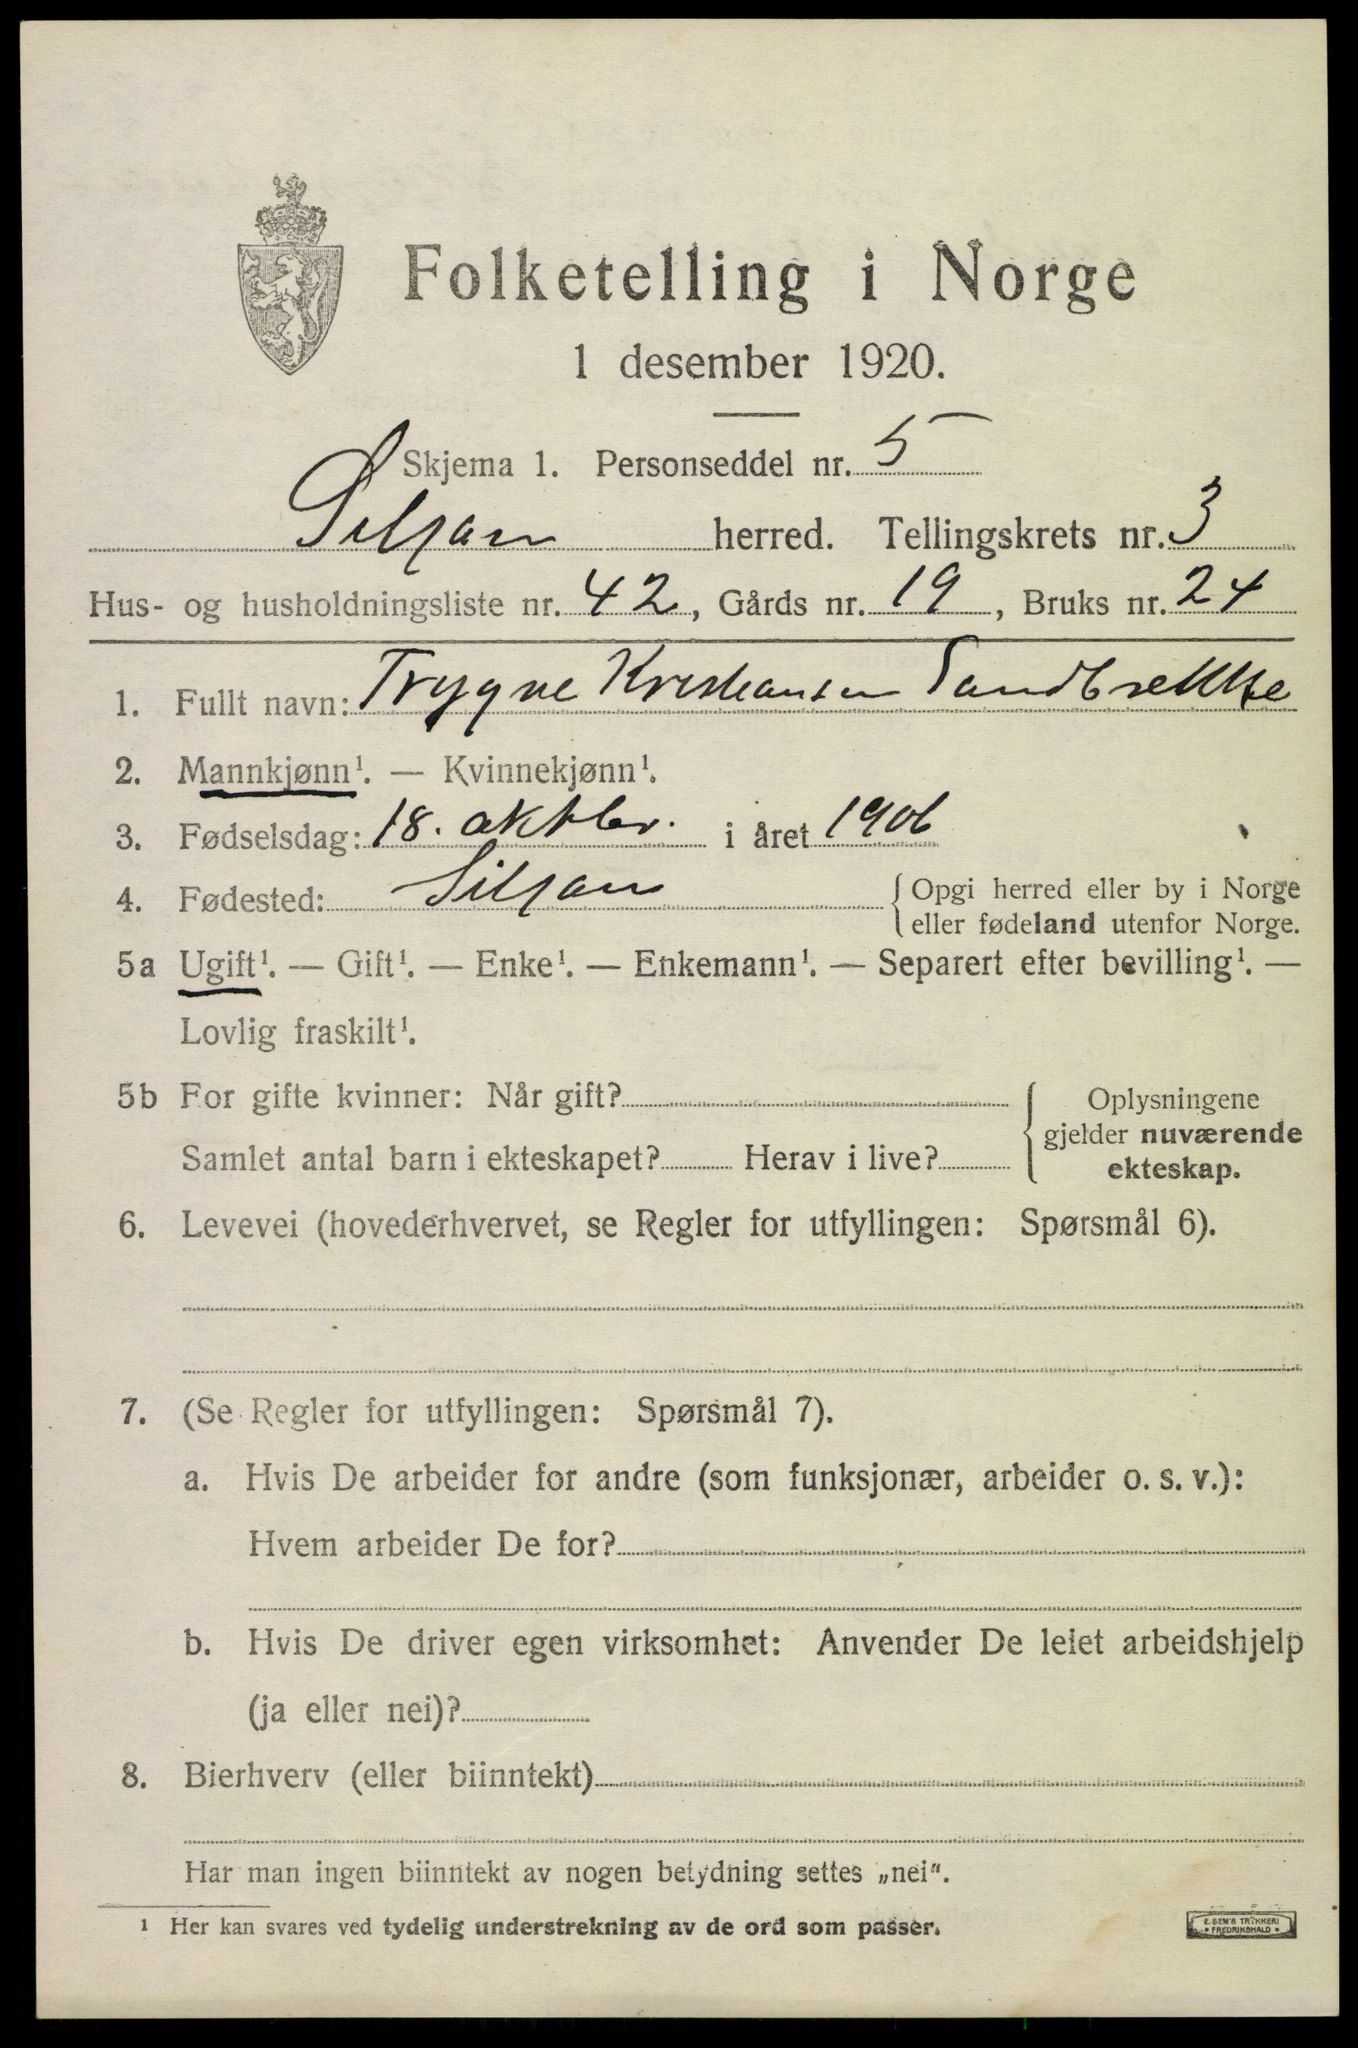 Folketelling i Norge
1 desember 1920.
Skjema 1. Personseddel nr. 5
Siljan herred. Tellingskrets nr. 3
Hus- og husholdningsliste nr. 42, Gårds nr. 19, Bruks nr. 24
1. Fullt navn: Trygve Kristiansen Sandbrekke
2. Mannkjønn¹. — Kvinnekjønn¹.
3. Fødselsdag: 18. oktbr. i året 1906
4. Fødested: Siljan { Opgi herred eller by i Norge
eller fødeland utenfor Norge.
5a Ugift¹. — Gift¹. — Enke¹. — Enkemann¹. — Separert efter bevilling¹. —
Lovlig fraskilt¹.
5b For gifte kvinner: Når gift? { Oplysningene
gjelder nuværende
Samlet antal barn i ekteskapet? Herav i live? ekteskap.
6. Levevei (hovederhvervet, se Regler for utfyllingen: Spørsmål 6).
7. (Se Regler for utfyllingen: Spørsmål 7).
a. Hvis De arbeider for andre (som funksjonær, arbeider o. s. v.):
Hvem arbeider De for?
b. Hvis De driver egen virksomhet: Anvender De leiet arbeidshjelp
(ja eller nei)?
8. Bierhverv (eller biinntekt)
Har man ingen biinntekt av nogen betydning settes „nei".
¹ Her kan svares ved tydelig understrekning av de ord som passer.
E. SEM'S TRYKKERI
• FREDRIKSHALD •